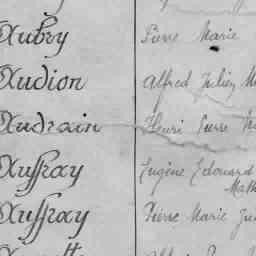 Aubry Pierre Marie
Audion Alfred Julien
Audrain Henri Pierre
Auffray Eugène Edouard
Auffray Pierre Marie